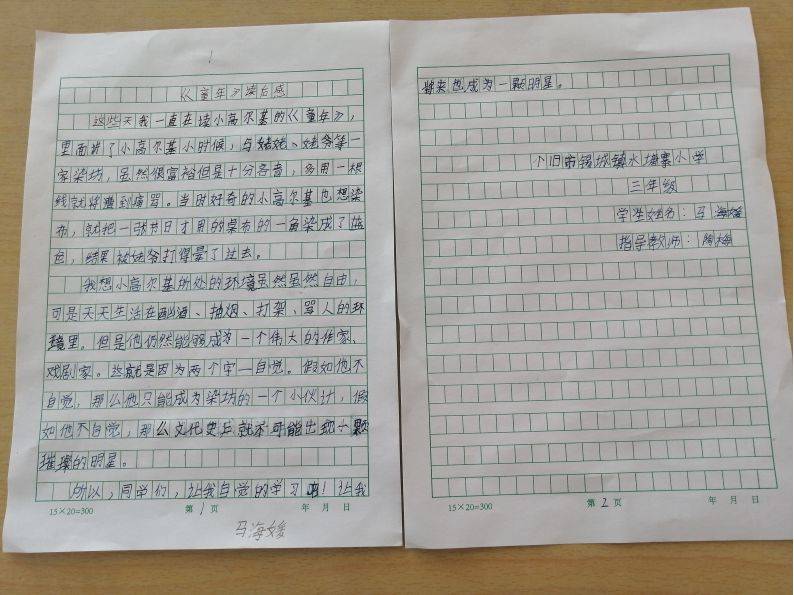 1
《童年》读后感
这些天我一直在读小高尔基的《童年》，
里面讲了小高尔基小时候，与姥姥、姥爷等一
家染坊，虽然很富裕但是十分吝啬，多用一根
线就将遭到痛骂。当时好奇的小高尔基也想染
布，就把一张节日才用的桌布的一角染成了蓝
色，结果被姥爷打得晕了过去。
我想小高尔基所处的环境虽然虽然自由，
可是天天生活在酗酒、抽烟、打架、骂人的环
境里。但是他仍然能够成为一个伟大的作家、
戏剧家。这就是因为两个字—自觉。假如他不
自觉，那么他只能成为染坊的一个小伙计，假
如他不自觉，那么文化史上就不可能出现一颗
璀璨的明星。
所以，同学们，让我自觉的学习啊！让我
15×20=300 第1页 年 月 日
马海媛
将来也成为一颗明星。
个旧市锡城镇水塘寨小学
三年级
学生姓名：马海媛
指导教师：陶梅
15×20=300 第2页 年 月 日